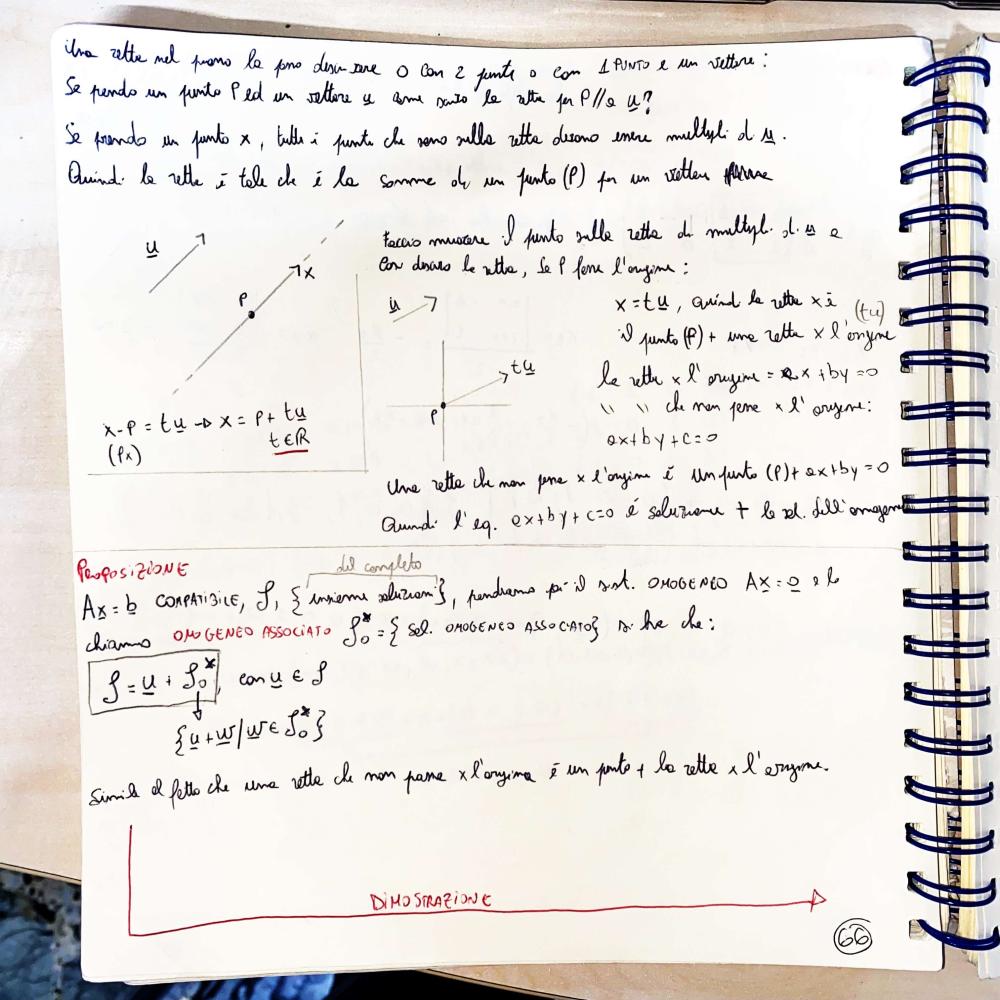 Una retta nel piano la puo descrivere o con 2 punti o con 1 PUNTO e un vettore:
Se prendo un punto P ed un vettore u come scrivo la retta per P // a u?
Se prendo un punto x, tutti i punti che sono sulla retta devono essere multipli di u.
Quindi la retta è tale che è la somma di un punto (P) per un vettore
u
P
x
x-P = tu → x = P + tu
(Px)
t∈ℝ
Faccio muovere il punto sulla retta di multipli di u e
così disegno la retta, Se P fosse l'origine:
u
tu
P
x = tu, quindi la retta x è
il punto (P) + una retta x l'origine (tu)
la retta x l'origine = ax + by = 0
" " che non passa x l'origine:
ax+by+c=0
Una retta che non passa x l'origine è un punto (P) + ax+by=0
Quindi l'eq. ax+by+c=0 è soluzione + la sol. dell'omogenea
PROPOSIZIONE
del completo
Ax = b COMPATIBILE, S, {insieme soluzioni}, prendiamo poi il sist. OMOGENEO Ax = 0 e lo
chiamo OMOGENEO ASSOCIATO S₀* = {sol. OMOGENEO ASSOCIATO} si ha che:
S = u + S₀*, con u ∈ S
{u+w/w∈S₀*}
Simile al fatto che una retta che non passa x l'origine è un punto + la retta x l'origine.
DIMOSTRAZIONE
66